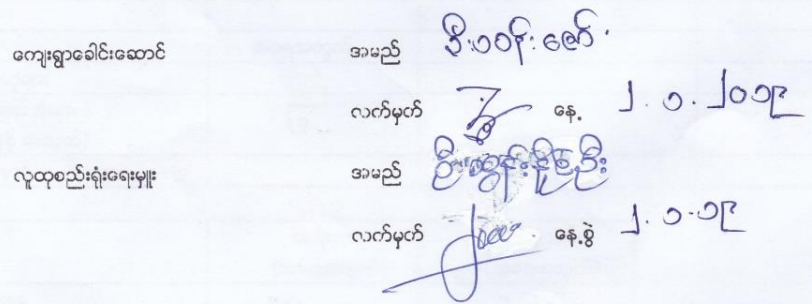 ကျေးရွာခေါင်းဆောင် အမည် ဦးဝဏ်းဇော်
လက်မှတ် နေ့ ၂.၁.၂၀၁၉
လူထုစည်းရုံးရေးမှူး အမည် ဦးထွန်းနိုင်ဦး
လက်မှတ် နေ့စွဲ ၂.၁-၁၉